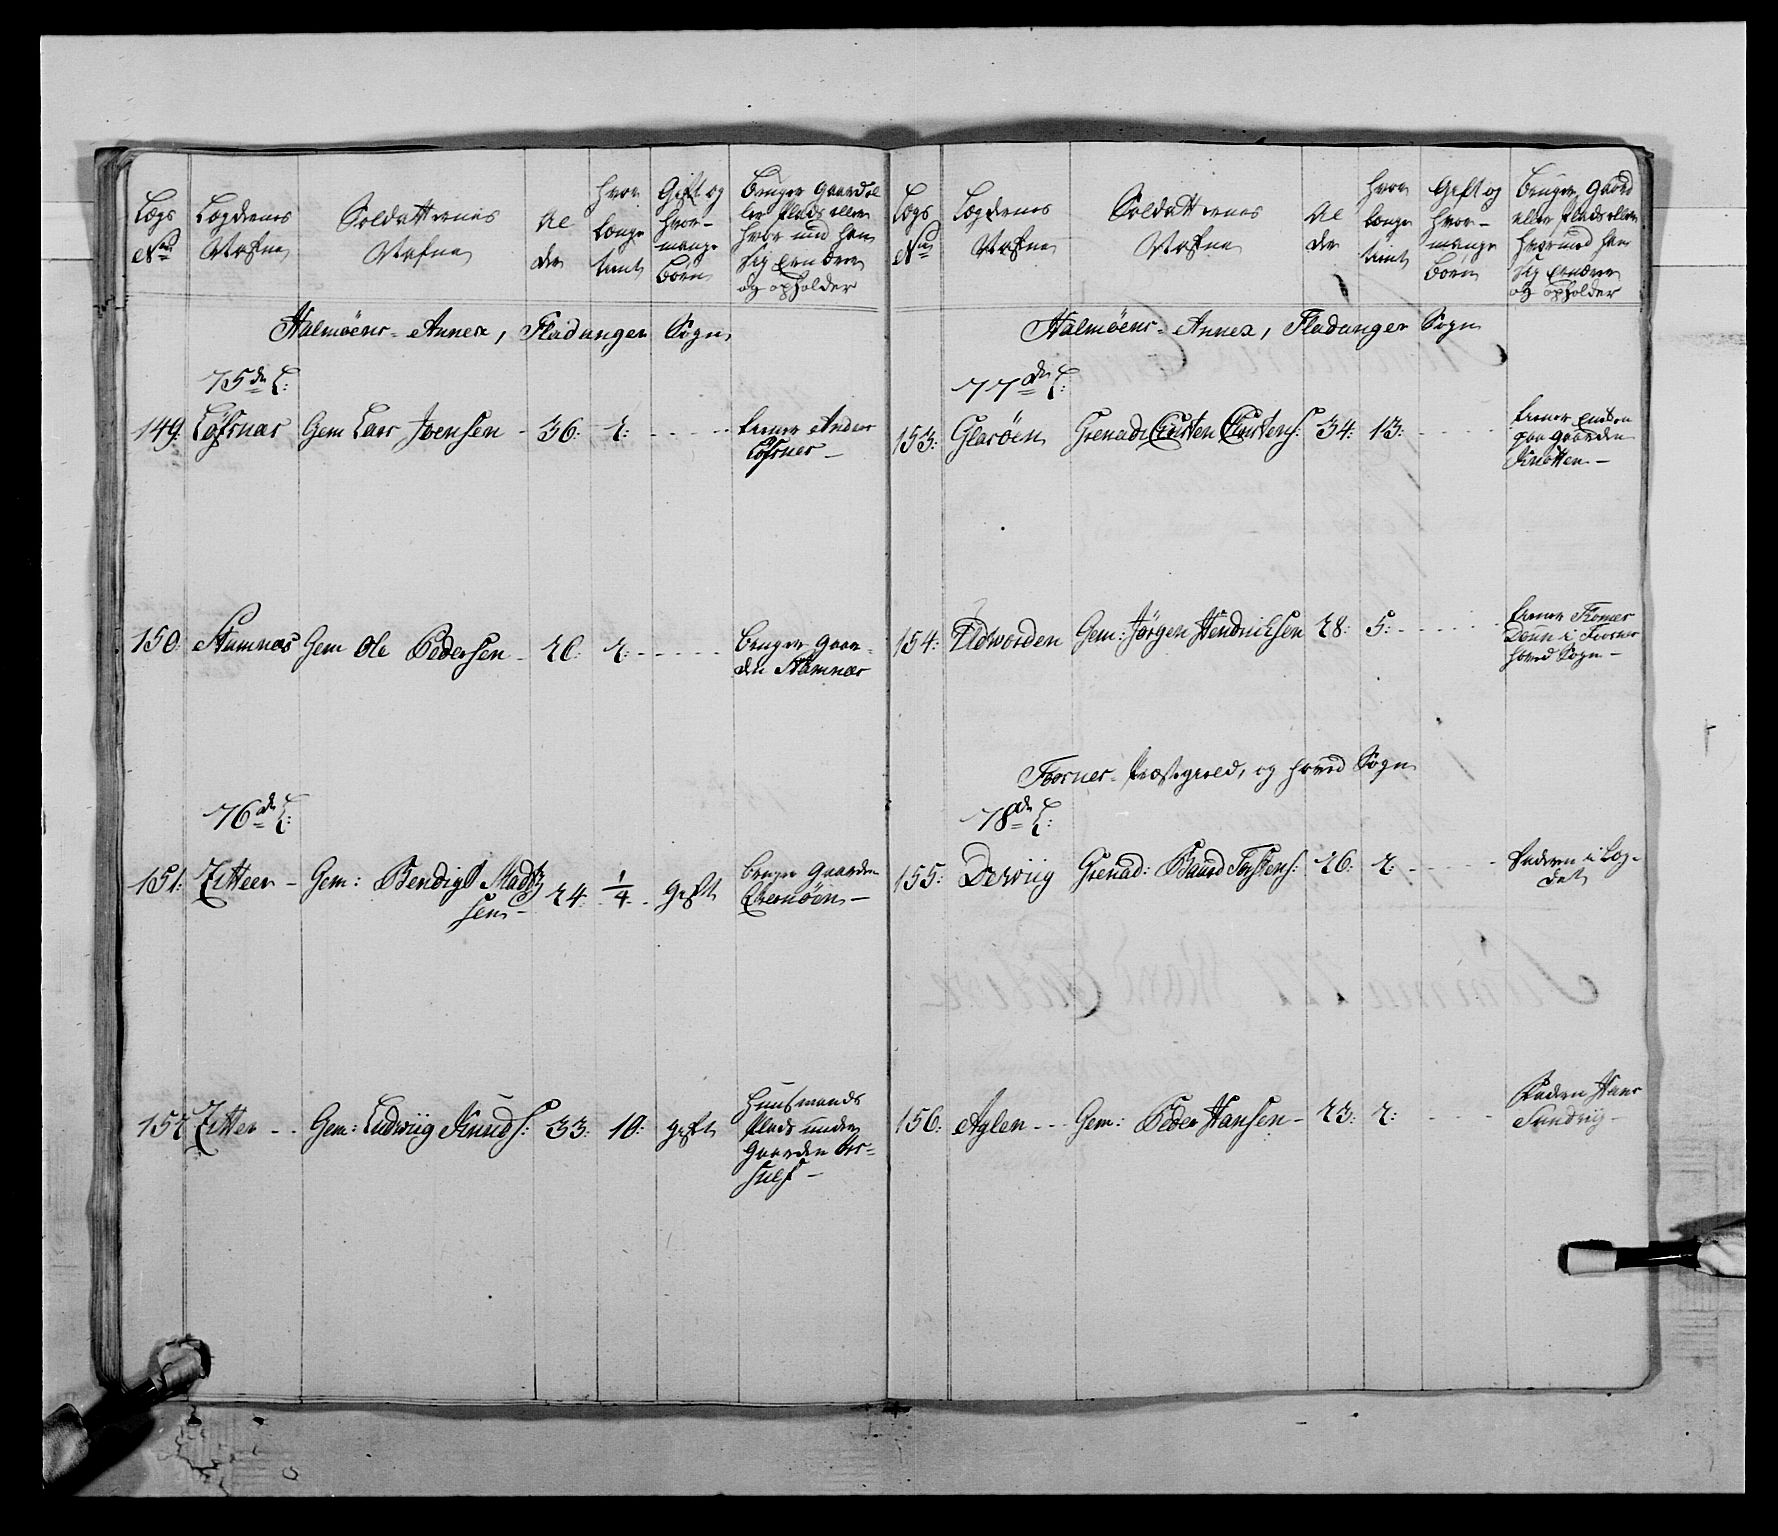 Lægs
No
Lægdernes
Nafne
Soldatternes
Nafne
Al
der
hvor
længe
tient
Gift og
hvor-
mange
børn
bruger gaard el
ler Plads eller
hvor med han
sig ernærer
og opholder
Halmøens- Annex, Fladanger Sogn
75de L:
149: Løfsnæs Gem Lars Joensen - 36: 2: - - - - tiener Ander
Løfsnes -
150: Namnæs Gem Ole Pedersen - 26: 2: - - - - bruger gaar-
den Namnæs
76de L:
151: Zitteer - Gem: Bendigt Mads
sen - 24: 1/4: - gift bruger gaarden
152 Zitter - - Gem: Ludwiig Knuds: 33: 10: gift Huusmands
Plads under
gaarden
Lægs
No
Lægdernes
Nafne
Soldatternes
Nafne
Al
der
hvor
længe
tient
Gift og
hvor-
mange
børn
bruger gaard
eller Plads eller
hvor med han
sig ernærer
og opholder
Halmøens- Annex, Fladanger Sogn
77de L:
153: Glasøen Grenad: Christen Christens: 34: 13: - - - - tiener
paa gaarden
Knotten -
154: Eldvorden Gem: Jørgen Hendricksen 28: 5: - - - - tiener
i Foosnes
hoved Sogn -
Foosnes- Præstegield, og hoved Sogn
78de L:
155: Derviig Grenad: Baard Torstens: 26: 2: - - - - Faderen i Læg-
det
156: Aglen - - - Gem: Peder Hansen - 23: 2: - - - Faderen Hans
Sandvig -